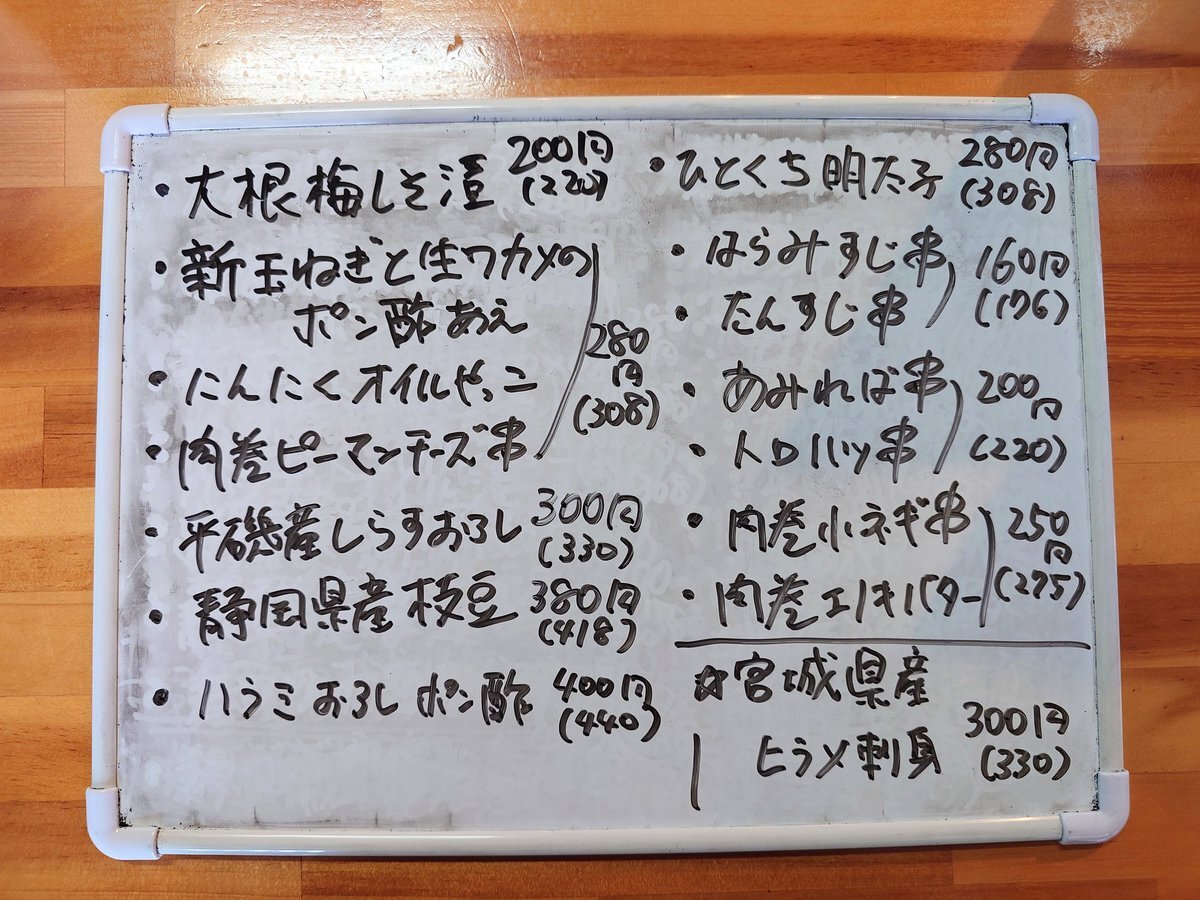 ・大根梅しそ漬 200円
(220)
・新玉ねぎと生ワカメの
ポン酢あえ
・にんにくオイルやっこ
・肉巻ピーマンチーズ串
280
円
(308)
・平磯産しらすおろし 300円
(330)
・静岡県産枝豆 380円
(418)
・ハラミおろしポン酢 400円
(440)
・ひとくち明太子 280円
(308)
・はらみすじ串
・たんすじ串
160円
(176)
・あみればば串
・トロハツ串
200
円
(220)
・肉巻小ネギ串
・肉巻エノキバター
250
円
(275)
☆宮城県産
ヒラメ刺身 300円
(330)